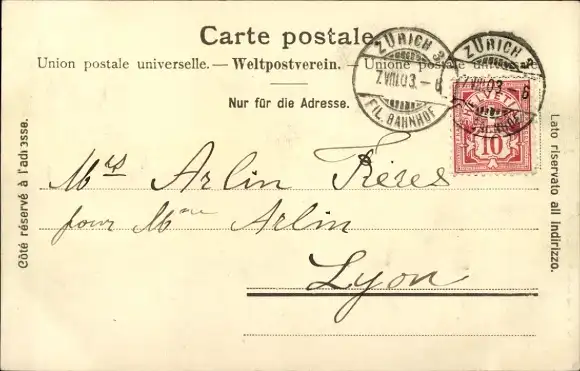 Carte postale.
Union postale universelle. — Weltpostverein. — Unione postale
Nur für die Adresse.
ZÜRICH 3
7.VIII.03.–6
FIL. BAHNHOF
ZÜRICH 3
7.VIII.03. 6
FIL. BAHNHOF
HELVETIA
10
Côté réservé à l'adresse.
Mrs Arlin Frères
pour Mme Arlin
Lyon
Lato riservato all indirizzo.